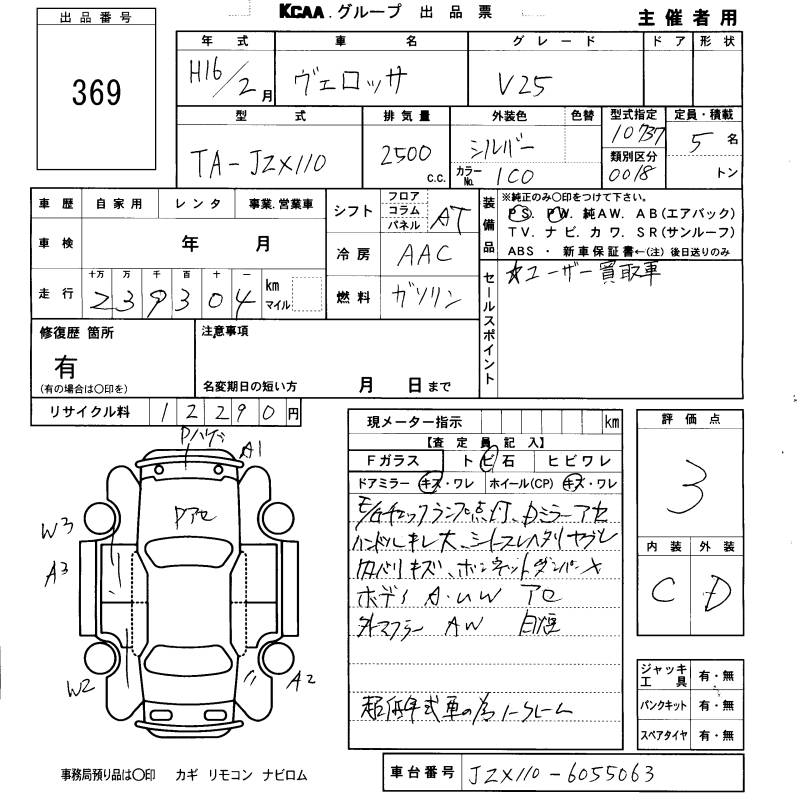 KCAA.グループ 出品票
主催者用
出品番号
369
年式 車名 グレード ドア 形状
H16/2月 ヴェロッサ V25
型式 排気量 外装色 色替 型式指定 定員・積載
TA-JZX110 2500 c.c. シルバー 10737 5名
カラーNo. 1C0 類別区分 0018 トン
車歴 自家用 レンタ 事業.営業車
シフト フロア コラム パネル AT
装備品 ※純正のみ○印をつけて下さい。
PS. PW. 純AW. AB(エアバック)
TV. ナビ. カワ. SR(サンルーフ)
ABS ・ 新車保証書←(注) 後日送りのみ
車検 年 月
冷房 AAC
セールスポイント ☆ユーザー買取車
走行 十万 万 千 百 十 一
239304 km マイル
燃料 ガソリン
修復歴 箇所 注意事項
有
(有の場合は○印を) 名変期日の短い方 月 日まで
リサイクル料 12290円
現メーター指示 km
【査定員記入】
Fガラス トビ石 ヒビワレ
ドアミラー キズ・ワレ ホイール(CP) キズ・ワレ
E/Gチェックランプ点灯、Dミラーアセ
ハンドルキレ大、シートスレヘタリヤブレ
内バリキズ、ボンネットダンパー×
ボディA・U・W アセ
外マフラー AW 自煙
超低年式車の為ノークレーム
評価点
3
内装 外装
C D
Pハゲ A1
Pアセ
W3
A3
W2 A2
ジャッキ工具 有・無
パンクキット 有・無
スペアタイヤ 有・無
事務局預り品は○印 カギ リモコン ナビロム
車台番号 JZX110-6055063